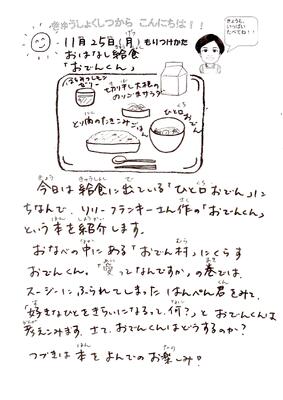 きゅうしょくしつから こんにちは！！
11月25日(月) もりつけかた
おはなし給食
「おでんくん」
きょうも、
いっぱい
たべてね！！
はちみつレモン
ゼリー
せつぼし大根の
のりごまサラダ
ひと口おでん
とり肉のたきこみごはん
今日は給食に出ている「ひと口おでん」に
ちなんで、リリーフランキーさん作の「おでんくん」
という本を紹介します。
おなべの中にある「おでん村」にくらす
おでんくん。「愛ってなんですか」の巻では、
スージーにふられてしまったはんぺん君をみて、
「好きなひとをきらいになるって、何？」とおでんくんは
考えこみます。さて、おでんくんはどうするのか？
つづきは本をよんでのお楽しみ！